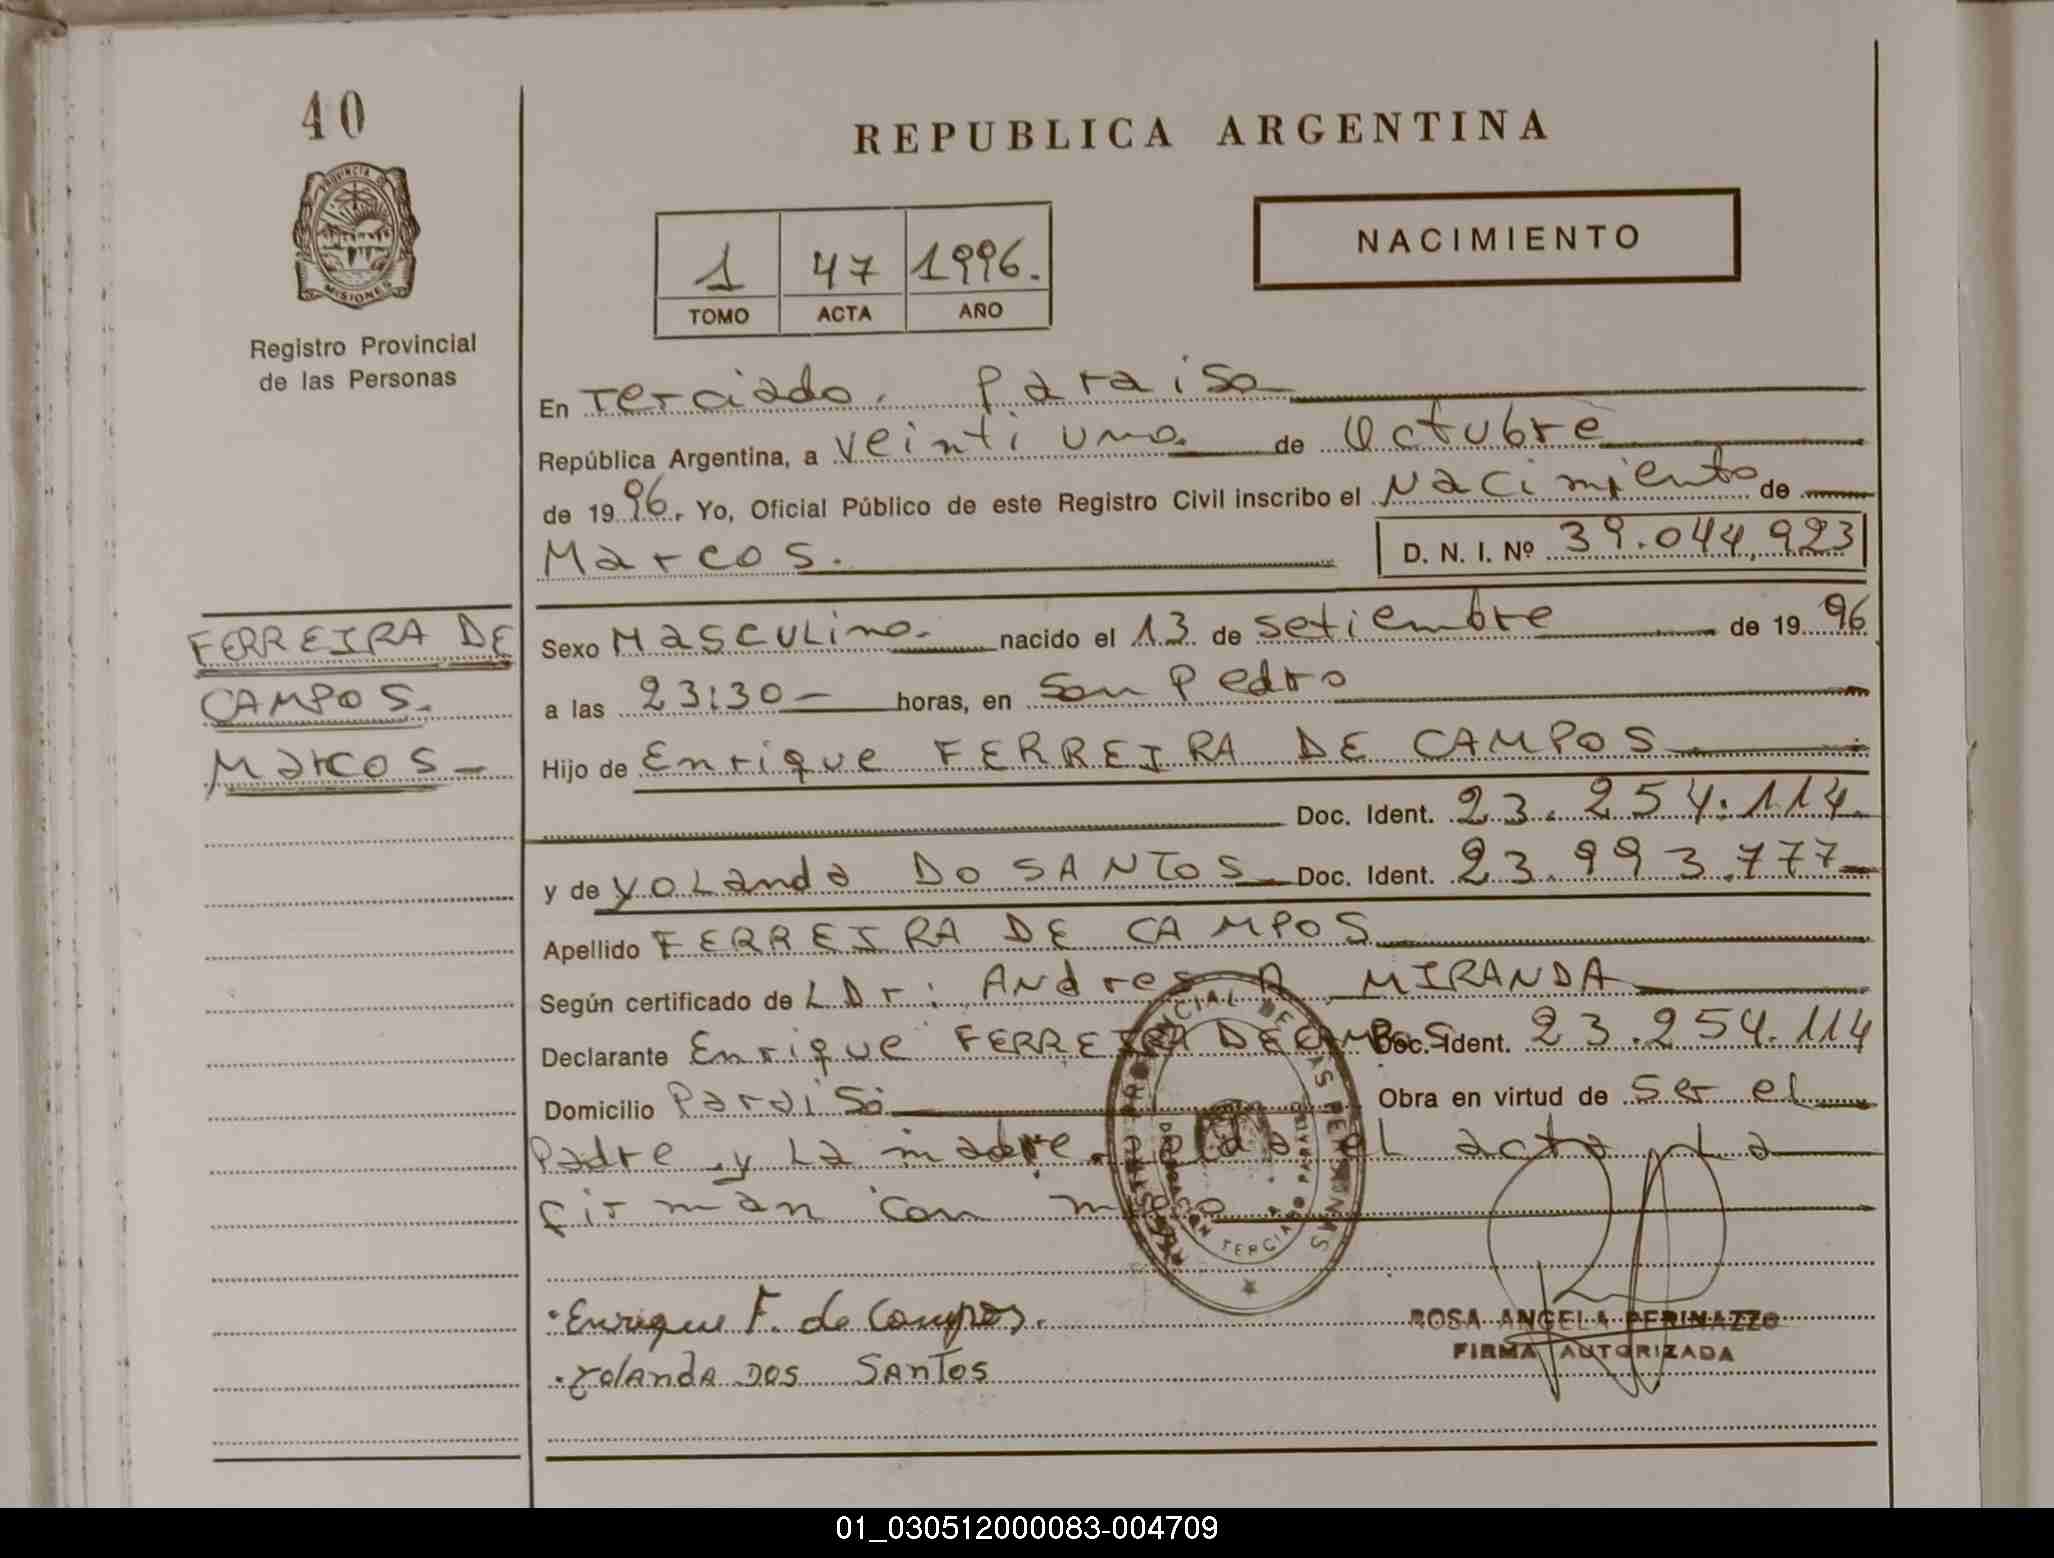 40
REPUBLICA ARGENTINA
PROVINCIA DE
MISIONES
Registro Provincial
de las Personas
1 47 1996.
TOMO ACTA AÑO
NACIMIENTO
En Terciado. Paraiso
República Argentina, a veinti uno. de Octubre
de 1996. Yo, Oficial Público de este Registro Civil inscribo el Nacimiento de
Marcos. D. N. I. Nº 39.044,923
FERREIRA DE
CAMPOS.
Marcos -
Sexo Masculino. nacido el 13 de setiembre de 1996
a las 23:30 - horas, en San Pedro
Hijo de Enrique FERREIRA DE CAMPOS
Doc. Ident. 23.254.114.
y de Yolanda DO SANTOS Doc. Ident. 23.993.777
Apellido FERREIRA DE CAMPOS
Según certificado de L Dr: Andres A MIRANDA
Declarante Enrique FERREIRA DE CAMPOS Doc. Ident. 23.254.114
Domicilio Paraiso Obra en virtud de ser el
Padre y La madre el acta La
firman con
·Enrique F. de Campos.
·Yolanda DOS SANTOS
ROSA ANGELA PERINAZZO
FIRMA AUTORIZADA
01_030512000083-004709